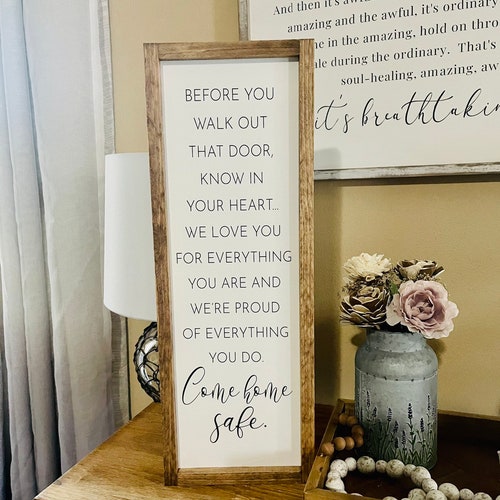 And then it's aw
amazing and the awful, it's ordinary
in the amazing, hold on
during the ordinary. That's
soul-healing, amazing, aw
it's breathtakin
BEFORE YOU
WALK OUT
THAT DOOR,
KNOW IN
YOUR HEART...
WE LOVE YOU
FOR EVERYTHING
YOU ARE AND
WE'RE PROUD
OF EVERYTHING
YOU DO.
Come home
safe.